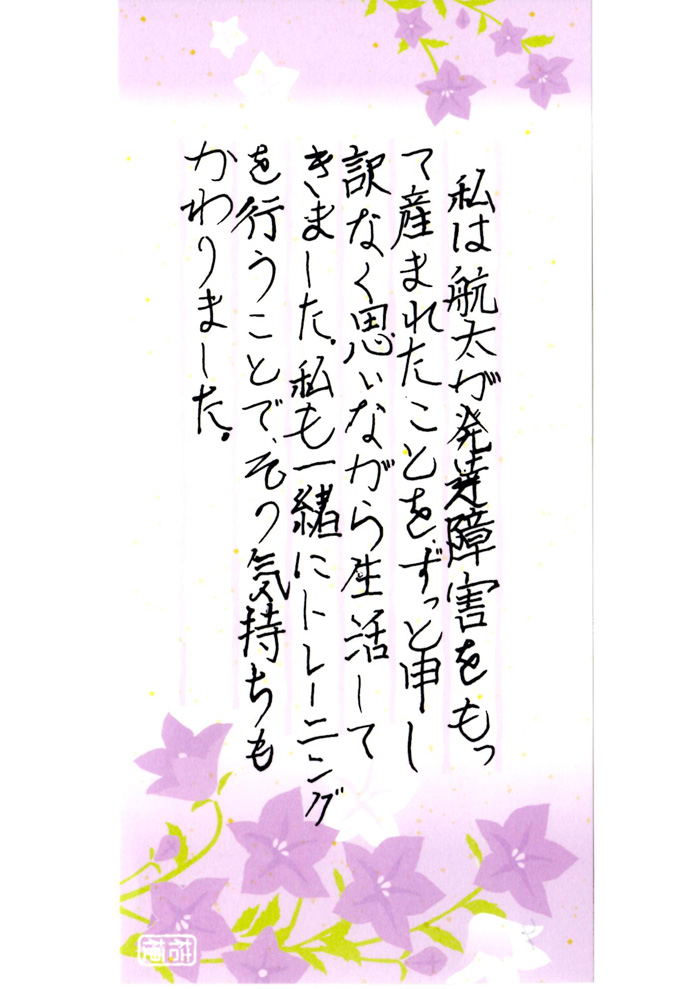 私は航太が発達障害をもっ
て産まれたことを、ずっと申し
訳なく思いながら生活して
きました。私も一緒にトレーニング
を行うことで、その気持ちも
かわりました。